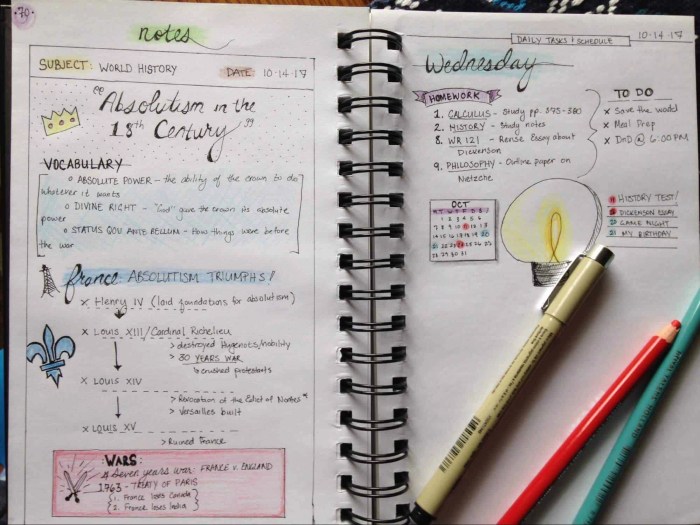 ·70·
notes
SUBJECT: WORLD HISTORY
DATE: 10·14·17
"Absolutism in the
18th Century"
VOCABULARY
o ABSOLUTE POWER – the ability of the crown to do
whatever it wants
o DIVINE RIGHT – "God" gave the crown its absolute
power
o STATUS QOU ANTE BELLUM – How things were before
the war
france: ABSOLUTISM TRIUMPHS!
x Henry IV (laid foundations for absolutism)
x Louis XIII/Cardinal Richelieu
> destroyed Hugenots/nobility
> 30 YEARS WAR
↳ crushed protestants
x LOUIS XIV
> Revocation of the Edict of Nantes
> Versailles built
x LOUIS XV
> Ruined France
:WARS:
Seven years war: FRANCE V. ENGLAND
1763 - TREATY OF PARIS
1. France loses Canada
2. France loses India
DAILY TASKS & SCHEDULE
10-14-17
Wednesday
HOMEWORK
1. CALCULUS - Study pp. 375-380
2. HISTORY - Study notes
8. WR 121 - Revise Essay about
Dickenson
9. PHILOSOPHY - Outline paper on
Nietzche
TO DO
x Save the world
x Meal Prep
x DnD @ 6:00 PM
OCT
HISTORY TEST!
DICKENSON ESSAY
GAME NIGHT
MY BIRTHDAY